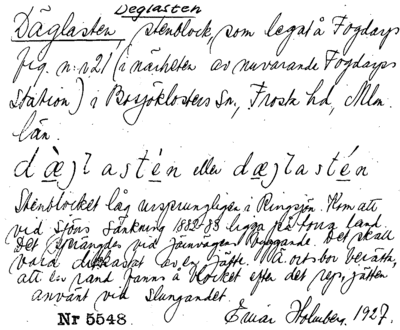 Deglasten
Däglasten, stenblock, som legat å Fogdarps
fig. n:r 21 (i närheten av nuvarande Fogdarps
Station) i Bosjöklosters Sn, Frosta hd, Mlm.
län.
dæ̀ɟlastén eller dæɟlastén
Stenblocket låg ursprungligen i Ringsjön. Kom att
vid sjöns sänkning 1882-83 ligga på torra land.
Det sprängdes vid järnvägens byggande. Det skall
vara ditkastat av en jätte. A. ortsbor berätta,
att en rand fanns å blocket efter det rep, jätten
använt vid slungandet.
Nr 5548 Einar Holmberg 1927.